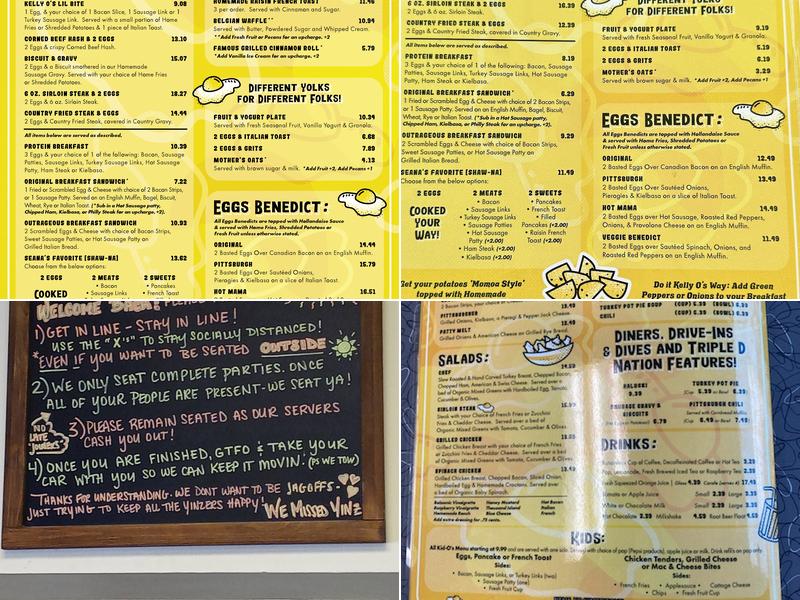 KELLY O'S LIL BITE 9.08
1 Egg with your choice of 1 Bacon Slice, 1 Sausage Link or 1
Sausage Patty. Served with a small portion of Home
Fries or Shredded Potatoes & 1 piece of Italian Toast.
CORNED BEEF HASH & 2 EGGS 13.10
2 Eggs & crispy Corned Beef Hash.
BISCUIT & GRAVY 15.07
2 Eggs & a Biscuit smothered in our Homemade
Sausage Gravy. Served with your choice of Home Fries
or Shredded Potatoes.
6 OZ. SIRLOIN STEAK & 2 EGGS 18.27
2 Eggs & 6 oz. Sirloin Steak.
COUNTRY FRIED STEAK & EGGS 14.44
2 Eggs & Country Fried Steak, covered in Country Gravy.
All items below are served as described.
PROTEIN BREAKFAST 10.39
3 Eggs & your choice of 1 of the following: Bacon, Sausage
Patties, Sausage Links, Turkey Sausage Links, Hot Sausage
Patty, Ham Steak or Kielbasa.
ORIGINAL BREAKFAST SANDWICH* 7.22
1 Fried or Scrambled Egg & Cheese with choice of 2 Bacon Strips,
or 1 Sausage Patty. Served on an English Muffin, Bagel, Biscuit,
Wheat, Rye or Italian Toast. (*Sub in a Hot Sausage patty,
Chipped Ham, Kielbasa, or Philly Steak for an upcharge. +2).
OUTRAGEOUS BREAKFAST SANDWICH 10.93
2 Scrambled Eggs & Cheese with choice of 2 Bacon Strips,
Sweet Sausage Patties, or Hot Sausage Patty on
Grilled Italian Bread.
SEANA'S FAVORITE (SHAW-NA) 13.62
Choose from the options below:
2 EGGS 2 MEATS 2 SWEETS
COOKED
• Bacon
• Sausage Links
• Pancakes
• French Toast
HOMEMADE RAISIN FRENCH TOAST 11.46
3 per order. Served with Cinnamon and Sugar.
BELGIAN WAFFLE** 10.94
Served with Butter, Powdered Sugar and Whipped Cream.
*Add Fresh Fruit or Pecans for an upcharge. +2
FAMOUS GRILLED CINNAMON ROLL* 5.79
*Add Vanilla Ice Cream for an upcharge. +2
DIFFERENT YOLKS
FOR DIFFERENT FOLKS!
FRUIT & YOGURT PLATE 10.34
Served with Fresh Seasonal Fruit, Vanilla Yogurt & Granola.
2 EGGS & ITALIAN TOAST 6.68
2 EGGS & GRITS 7.89
MOTHER'S OATS* 4.13
Served with brown sugar & milk. *Add Fruit +2, Add Pecans +1
EGGS BENEDICT:
All Eggs Benedicts are topped with Hollandaise Sauce
& served with Home Fries, Shredded Potatoes or
Fresh Fruit unless otherwise stated.
ORIGINAL 14.44
2 Basted Eggs Over Canadian Bacon on an English Muffin.
PITTSBURGH 15.79
2 Basted Eggs Over Sautéed Onions,
Pierogies & Kielbasa on an English Muffin.
HOT MAMA 16.51
6 OZ. SIRLOIN STEAK & 2 EGGS 16.39
2 Eggs & 6 oz. Sirloin Steak.
COUNTRY FRIED STEAK & EGGS 12.39
2 Eggs & Country Fried Steak, covered in Country Gravy.
All items below are served as described.
PROTEIN BREAKFAST 8.19
3 Eggs & your choice of 1 of the following: Bacon, Sausage
Patties, Sausage Links, Turkey Sausage Links, Hot Sausage
Patty, Ham Steak or Kielbasa.
ORIGINAL BREAKFAST SANDWICH* 6.29
1 Fried or Scrambled Egg & Cheese with choice of 2 Bacon Strips,
or 1 Sausage Patty. Served on an English Muffin, Bagel, Biscuit,
Wheat, Rye or Italian Toast. (*Sub in a Hot Sausage patty,
Chipped Ham, Kielbasa, or Philly Steak for an upcharge. +2).
OUTRAGEOUS BREAKFAST SANDWICH 9.29
2 Scrambled Eggs & Cheese with choice of 2 Bacon Strips,
Sweet Sausage Patties, or Hot Sausage Patty on
Grilled Italian Bread.
SEANA'S FAVORITE (SHAW-NA) 11.49
Choose from the options below:
2 EGGS 2 MEATS 2 SWEETS
COOKED
YOUR
WAY!
• Bacon
• Sausage Links
• Turkey Sausage Links
• Sausage Patties
• Hot Sausage
Patty (+2.00)
• Ham Steak (+2.00)
• Kielbasa (+2.00)
• Pancakes
• French Toast
• Filled
Pancakes (+2.00)
• Raisin French
Toast (+2.00)
Get your potatoes 'Momoa Style'
topped with Homemade
DIFFERENT YOLKS
FOR DIFFERENT FOLKS!
FRUIT & YOGURT PLATE 9.19
Served with Fresh Seasonal Fruit, Vanilla Yogurt & Granola.
2 EGGS & ITALIAN TOAST 5.19
2 EGGS & GRITS 6.19
MOTHER'S OATS* 3.29
Served with brown sugar & milk. *Add Fruit +2, Add Pecans +1
EGGS BENEDICT:
All Eggs Benedicts are topped with Hollandaise Sauce
& served with Home Fries, Shredded Potatoes or
Fresh Fruit unless otherwise stated.
ORIGINAL 12.49
2 Basted Eggs Over Canadian Bacon on an English Muffin.
PITTSBURGH 13.49
2 Basted Eggs Over Sautéed Onions,
Pierogies & Kielbasa on an English Muffin.
HOT MAMA 14.49
2 Basted Eggs over Hot Sausage, Roasted Red Peppers,
Onions, & Provolone Cheese on an English Muffin.
VEGGIE BENEDICT 11.49
2 Basted Eggs over Sautéed Spinach, Onions, and
Roasted Red Peppers on an English Muffin.
Do it Kelly O's Way: Add Green
Peppers or Onions to your Breakfast
WELCOME BACK!
1) GET IN LINE - STAY IN LINE!
USE THE "X'S" TO STAY SOCIALLY DISTANCED!
*EVEN IF YOU WANT TO BE SEATED OUTSIDE
2) WE ONLY SEAT COMPLETE PARTIES. ONCE
ALL OF YOUR PEOPLE ARE PRESENT-WE SEAT YA!
NO
LATE
JOINERS
3) PLEASE REMAIN SEATED AS OUR SERVERS
CASH YOU OUT!
4) ONCE YOU ARE FINISHED, GTFO & TAKE YOUR
CAR WITH YOU SO WE CAN KEEP IT MOVIN'. (PS WE TOW)
THANKS FOR UNDERSTANDING. WE DONT WANT TO BE JAGOFFS.
JUST TRYING TO KEEP ALL THE YINZERS HAPPY! WE MISSED YINZ
PITTSBURGHER 13.49
Grilled Onions, Kielbasa, a Pierogi & Pepper Jack Cheese.
PATTY MELT 13.49
Grilled Onions & American Cheese on Grilled Rye Bread.
SALADS:
CHEF 14.29
Slow Roasted & Hand Carved Turkey Breast, Chopped
Ham, American & Swiss Cheese. Served over a
bed of Organic Mixed Greens with Hardboiled Egg, Tomato,
Cucumber & Olives.
SIRLOIN STEAK
Steak with your Choice of French Fries or Zucchini
Fries & Cheddar Cheese. Served over a bed of
Organic Mixed Greens with Tomato, Cucumber & Olives.
GRILLED CHICKEN
Grilled Chicken Breast with your choice of French Fries
or Zucchini Fries & Cheddar Cheese. Served over a
bed of Organic Mixed Greens with Tomato, Cucumbers & Olives.
SPINACH CHICKEN 13.49
Grilled Chicken Breast, Bacon, Sliced Onion,
Hardboiled Egg & Homemade Croutons. Served over
a bed of Organic Baby Spinach.
Balsamic Vinaigrette Honey Mustard Hot Bacon
Raspberry Vinaigrette Thousand Island Italian
Homemade Ranch Blue Cheese French
Add extra dressing for .75 cents.
TURKEY POT PIE SOUP (CUP) (BOWL)
CHILI (CUP) (BOWL) 6.39
DINERS, DRIVE-INS
& DIVES AND TRIPLE D
NATION FEATURES!
HALUSKI TURKEY POT PIE
9.39
SAUSAGE GRAVY & PITTSBURGH CHILI
BISCUITS Served with Cornbread Muffin.
DRINKS:
Bottomless Cup of Coffee, Decaffeinated Coffee or Hot Tea 3.29
Pop, Lemonade, Fresh Brewed Iced Tea or Raspberry Tea
Fresh Squeezed Orange Juice | Glass 4.39
Tomato or Apple Juice Small 2.39 Large 3.39
White or Chocolate Milk Small 2.39 Large 3.39
Hot Chocolate 3.39 Milkshake 4.59 Root Beer Float
KIDS:
All Kid-O's Menu starting at 9.99 and are served with one side. Served with choice of pop (Pepsi products), apple juice or milk. Drink refills on pop only.
Eggs, Pancake or French Toast Chicken Tenders, Grilled Cheese
or Mac & Cheese Bites
Sides: Sides:
• Bacon, Sausage Links, or Turkey Links (two)
• Sausage Patty (one)
• Fresh Fruit Cup
• French Fries • Applesauce • Cottage Cheese
• Chips • Fresh Fruit Cup